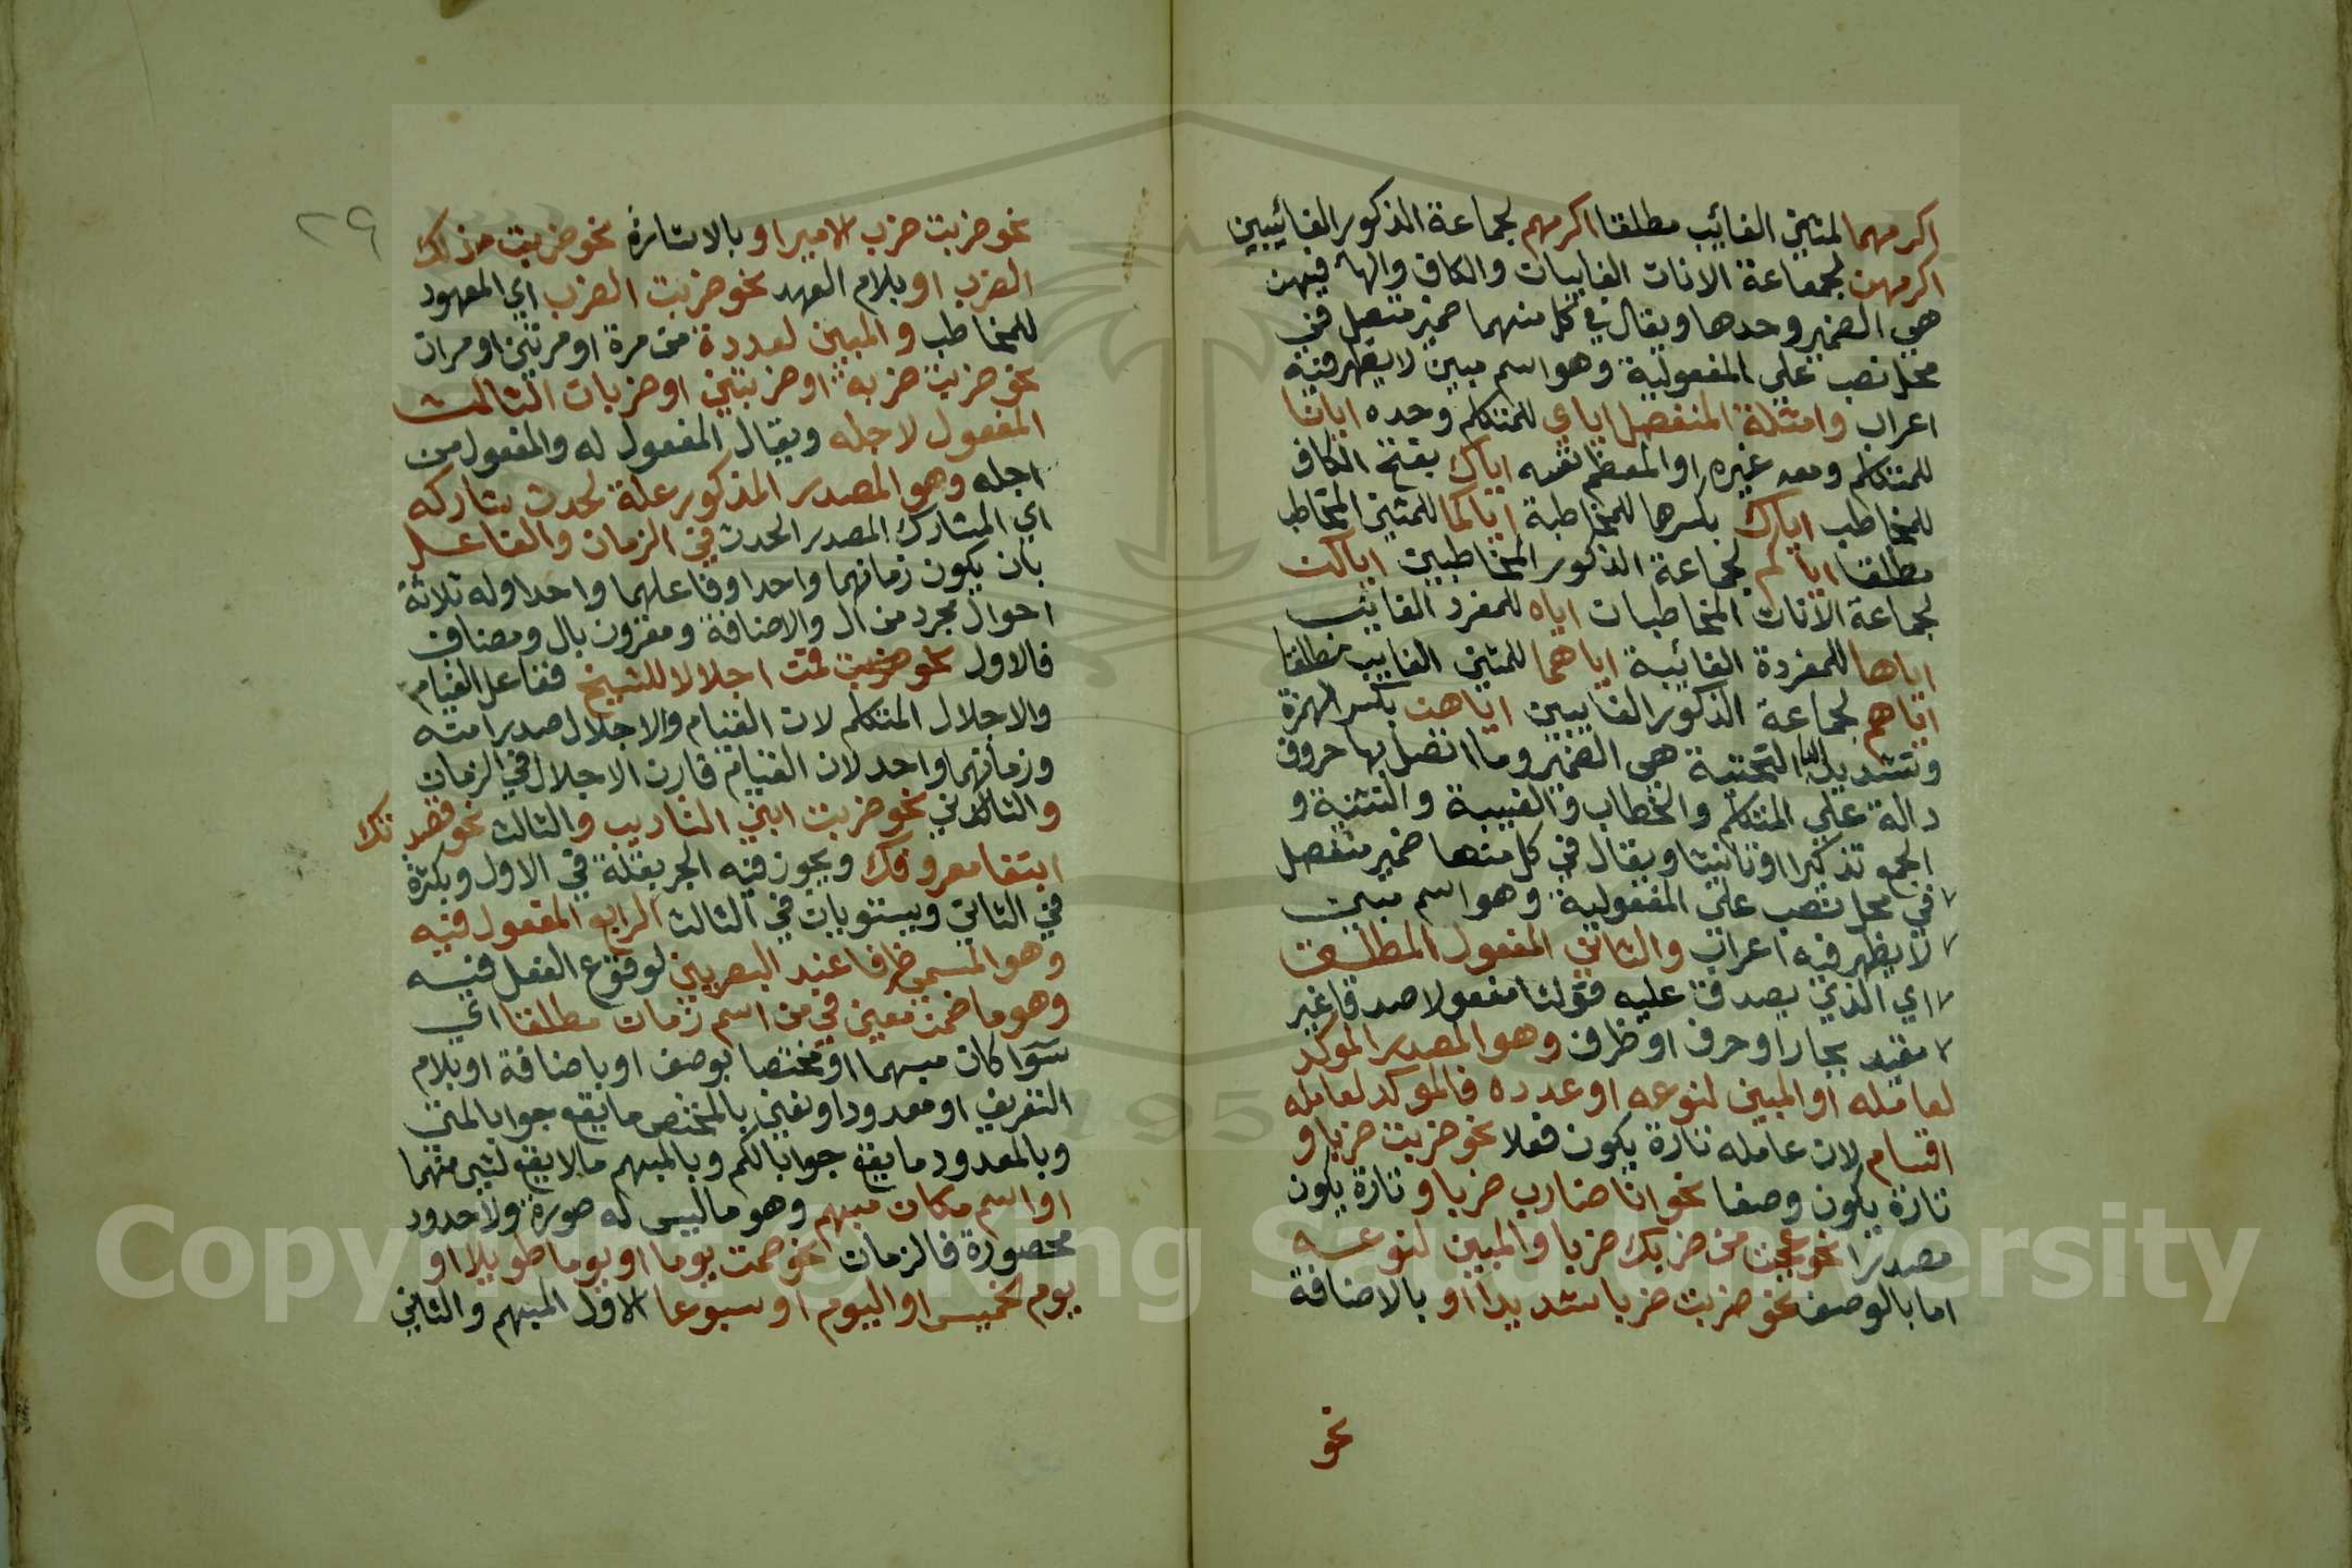 اكرمهما لمثني الغائب مطلقا اكرمهم لجماعة الذكور الغائبين
اكرمهن لجمعاعة الاناث الغايبات والكاف والهاء فيهن
هي الضمير وحدها ويقال في كل منهما ضمير متصل في
محل نصب علي المفعولية وهو اسم مبين لا يظهر فيه
اعراب وامثلة المنفصل اياي للمتكلم وحده ايانا
للمتكلم ومعه غيره او المعظم نفسه اياك بفتح الكاف
للمخاطب اياك بكسرها للمخاطبة اياكما للمثني المخاطب
مطلقا اياكم لجماعة الذكور المخاطبين اياكن
لجماعة الاناث المخاطبات اياه للمفرد الغايب
اياها للمفردة الغائبة اياهما للمثني الغايب مطلقا
اياهم لجماعة الذكور الغايبين اياهن بكسر الهمزة
وتشديد اليا التحتية هي الضمير وما اتصل بها حروف
دالة علي المتكلم والخطاب والغيبة والتثنية و
الجمع تذكيرا او تانيثا ويقال في كل منها ضمير منفصل
في محل نصب علي المفعولية وهو اسم مبين
لا يظهر فيه اعراب والثاني المفعول المطلق
اي الذي يصدق عليه قولنا مفعولا صدقا غير
مقيد بجار او حرف او ظرف وهو المصدر الموكد
لعامله او المبين لنوعه او عدده فالموكد لعامله
اقسام لان عامله تارة يكون فعلا نحو ضربت ضربا و
تارة يكون وصفا نحو انا ضارب ضربا وتارة يكون
مصدرا نحو عجبت من ضربك ضربا والمبين لنوعه
اما بالوصف نحو ضربت ضربا شديدا او بالاضافة
نحو
٢٩
نحو ضربت ضرب الامير او بالاشارة نحو ضربت ذلك
الضرب او بلام العهد نحو ضربت الضرب اي المعهود
للمخاطب والمبين لعدده من مرة او مرتين او مرات
نحو ضربت ضربة او ضربتين او ضربات الثالث
المفعول لاجله ويقال المفعول له والمفعول من
اجله وهو المصدر المذكور علة لحدث شاركه
اي المشارك المصدر الحدث في الزمان والفاعل
بان يكون زمانهما واحدا وفاعلهما واحدا وله ثلاثة
احوال مجرد من ال والاضافة ومقرون بال ومضاف
فالاول نحو قمت اجلالا للشيخ ففاعل القيام
والاجلال المتكلم لان القيام والاجلال صدرا منه
وزمانهما واحد لان القيام قارن الاجلال في الزمان
والثاني نحو ضربت ابني التاديب والثالث نحو قصدتك
ابتغا معروفك ويجوز فيه الجر بقلة في الاول وبكثرة
في الثاني ويستويان في الثالث الرابع المفعول فيه
وهو المسمي ظرفا عند البصريين لوقوع الفعل فيه
وهو ما ضمن معني في من اسم زمان مطلقا اي
سوا كان مبهما او مختصا بوصف او باضافة او بلام
التعريف او معدودا ونعني بالمختص ما يقع جوابا لمتي
وبالمعدود ما يقع جوابا لكم وبالمبهم ما لا يقع لشي منهما
او اسم مكان مبهم وهو ما ليس له صورة ولا حدود
محصورة فالزمان نحو صمت يوما او يوما طويلا او
يوم الخميس او اليوم او سبوعا الاول المبهم والثاني
Copyright © King Saud University